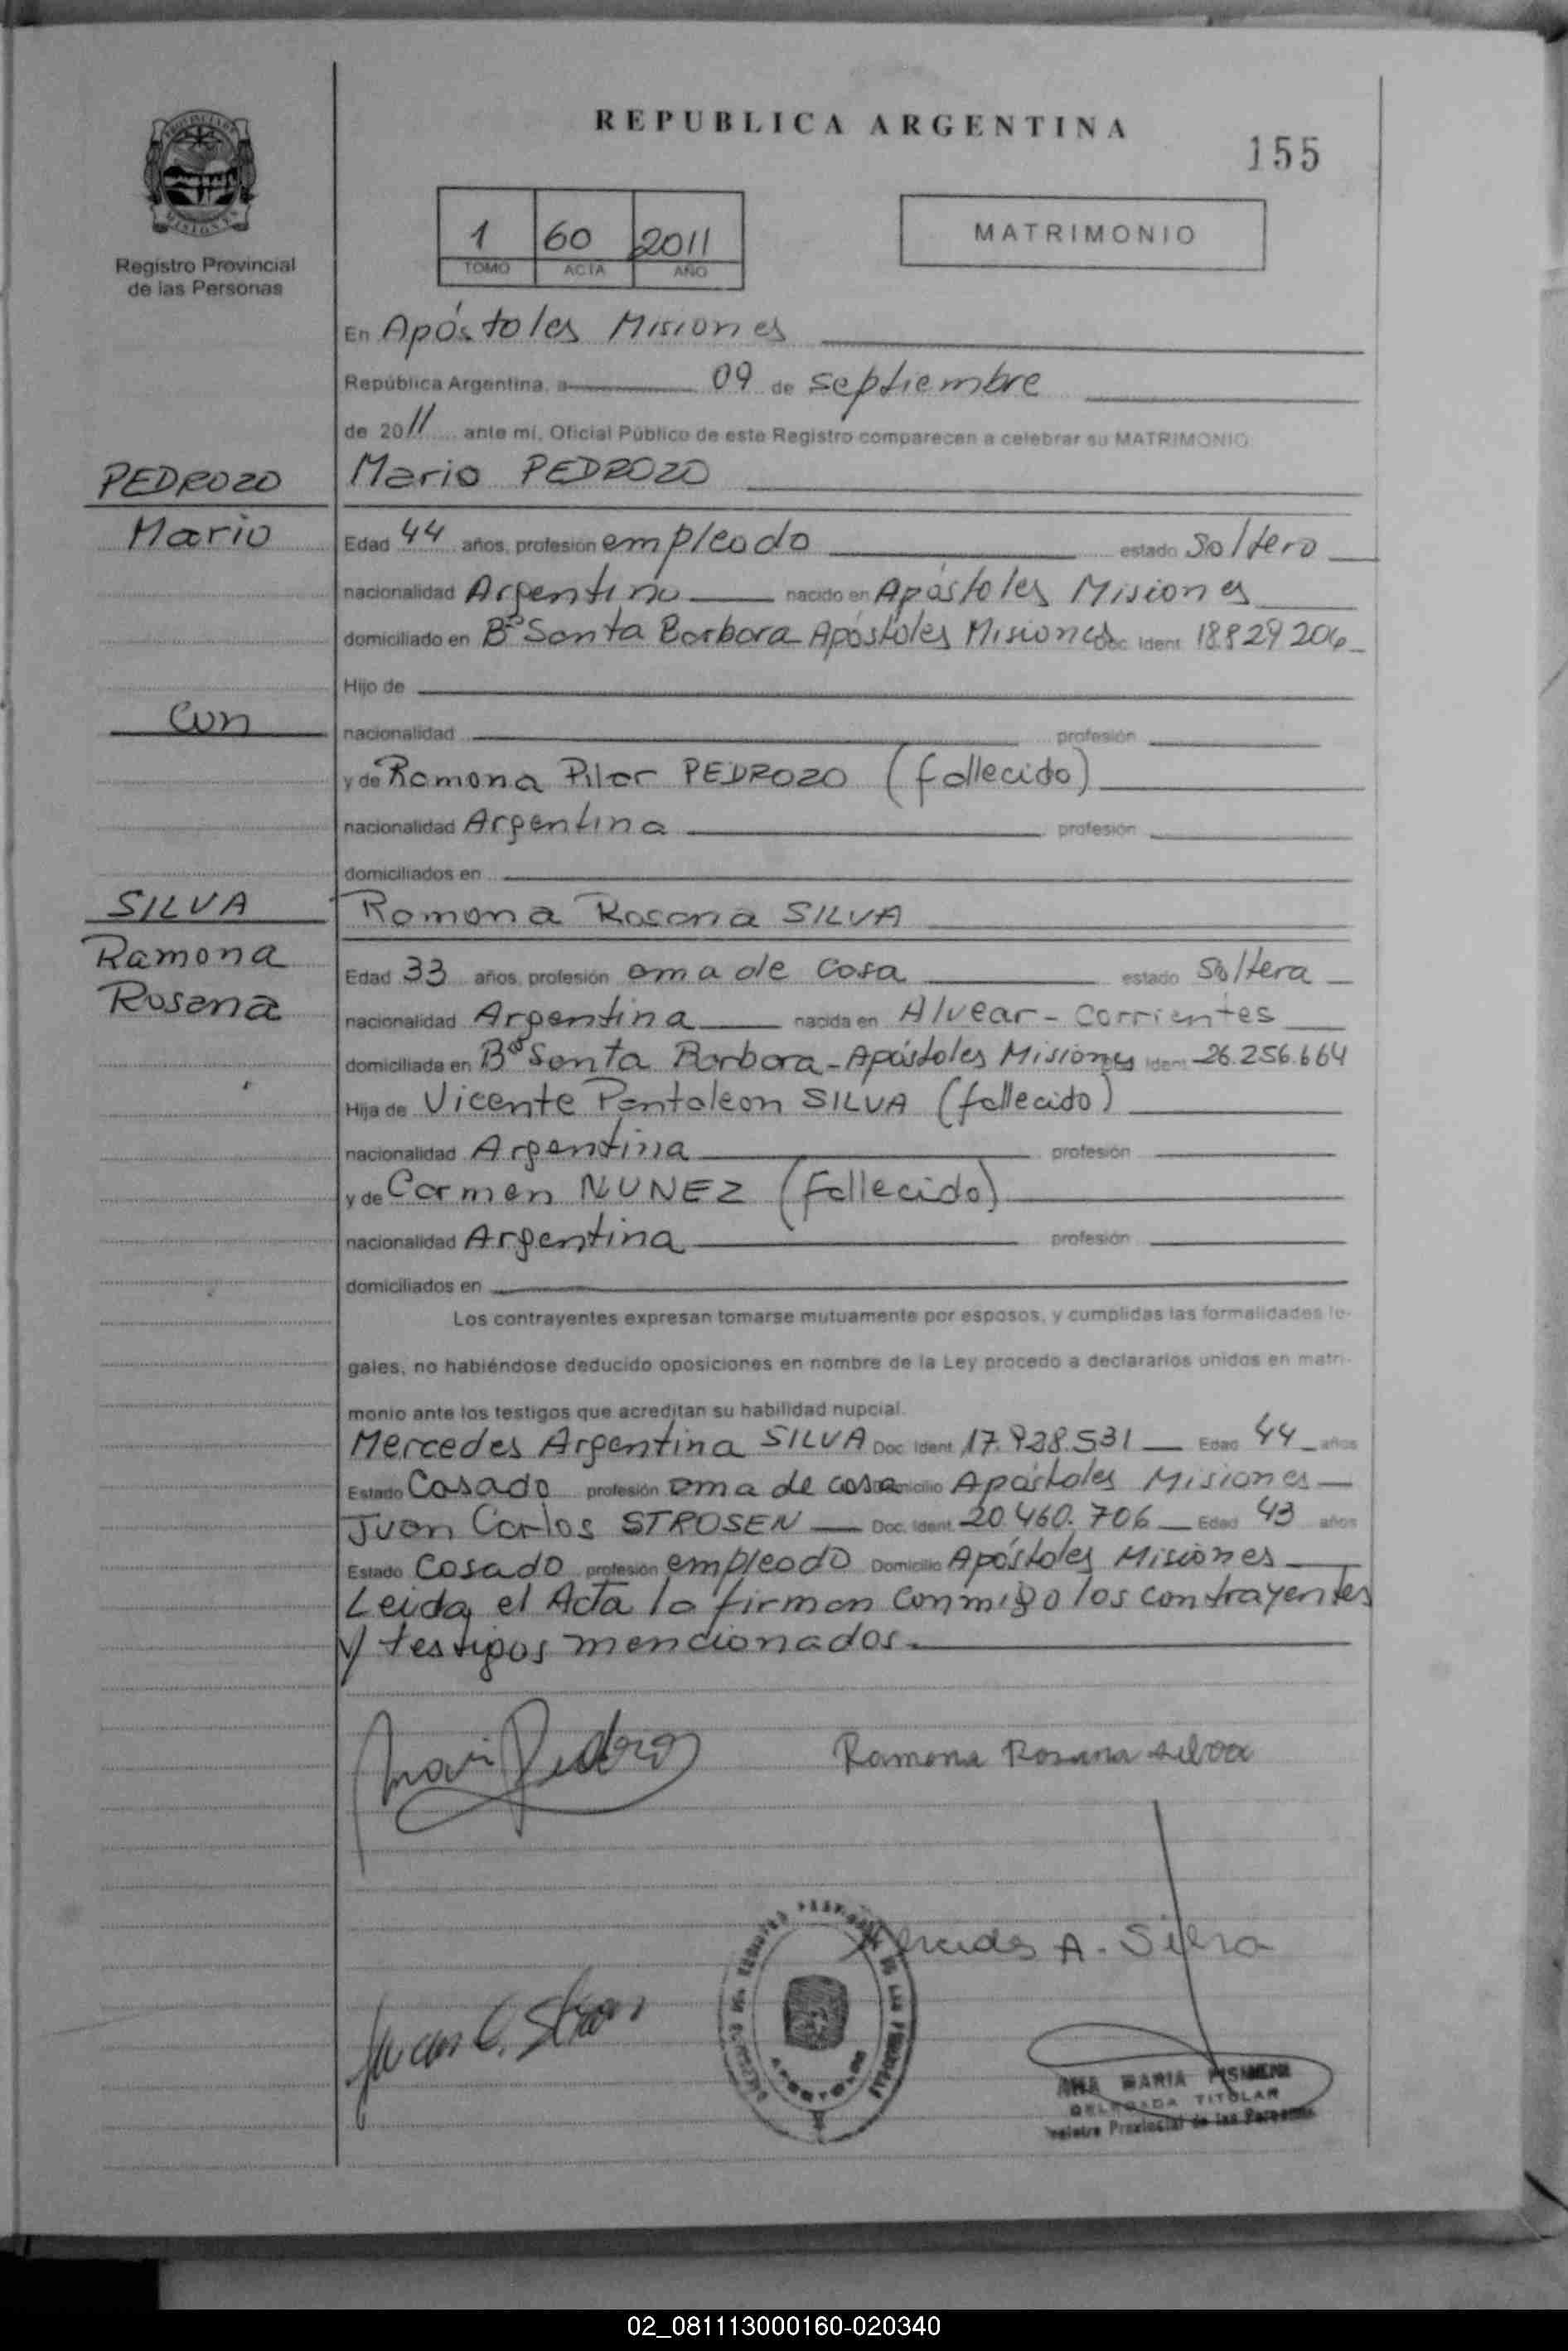 REPUBLICA ARGENTINA
155
1 60 2011
TOMO ACTA AÑO
MATRIMONIO
Registro Provincial
de las Personas
En Apóstoles Misiones
República Argentina, a 09 de septiembre
de 2011 ante mí, Oficial Público de este Registro comparecen a celebrar su MATRIMONIO
PEDROZO
Mario PEDROZO
Mario
Edad 44 años, profesión empleado estado Soltero
nacionalidad Argentino nacido en Apóstoles Misiones
domiciliado en Bº Santa Barbara Apóstoles Misiones Doc. Ident. 18.829.204
Hijo de
Con
nacionalidad profesión
y de Ramona Pilar PEDROZO (fallecido)
nacionalidad Argentina profesión
domiciliados en
SILVA
Ramona Rosana SILVA
Ramona
Rosana
Edad 33 años, profesión ama de casa estado Soltera
nacionalidad Argentina nacida en Alvear - Corrientes
domiciliada en Bº Santa Barbara - Apóstoles Misiones Ident. 26.256.664
Hija de Vicente Pantaleon SILVA (fallecido)
nacionalidad Argentina profesión
y de Carmen NUNEZ (fallecido)
nacionalidad Argentina profesión
domiciliados en
Los contrayentes expresan tomarse mutuamente por esposos, y cumplidas las formalidades le-
gales, no habiéndose deducido oposiciones en nombre de la Ley procedo a declararlos unidos en matri-
monio ante los testigos que acreditan su habilidad nupcial.
Mercedes Argentina SILVA Doc. Ident. 17.938.531 Edad 44 años
Estado Casado profesión ama de casa Domicilio Apóstoles Misiones
Juan Carlos STROSEN Doc. Ident. 20.460.706 Edad 43 años
Estado Casado profesión empleado Domicilio Apóstoles Misiones
Leida el Acta la firman conmigo los contrayentes
y testigos mencionados.
Ramona Rosana Silva
Mercedes A. Silva
Juan C.
ANA MARIA
DELEGADA TITULAR
Registro Provincial de las Personas
02_081113000160-020340